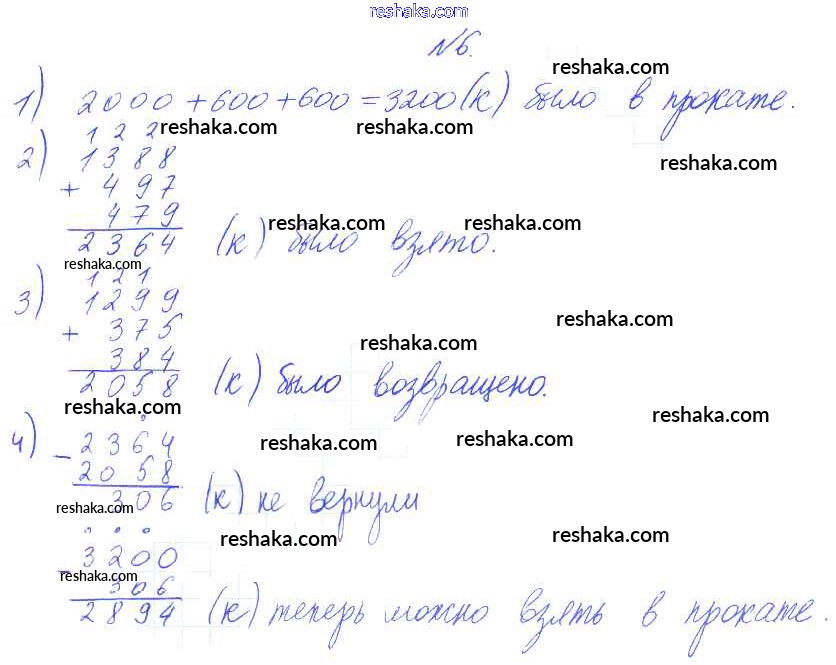 reshaka.com
№6.
reshaka.com
1) 2000 + 600 + 600 = 3200 (к) было в прокате.
1 2 2 reshaka.com reshaka.com
2) 1388 reshaka.com
+ 497
479
2364 (к) было взято.
reshaka.com reshaka.com
reshaka.com
1 2 1
3) 1299
+ 375 reshaka.com
384 reshaka.com
2058 (к) было возвращено.
reshaka.com reshaka.com
4) - 2364 reshaka.com reshaka.com
2058
306 (к) не вернули
reshaka.com
reshaka.com reshaka.com
- 3200
reshaka.com
306
2894 (к) теперь можно взять в прокате.